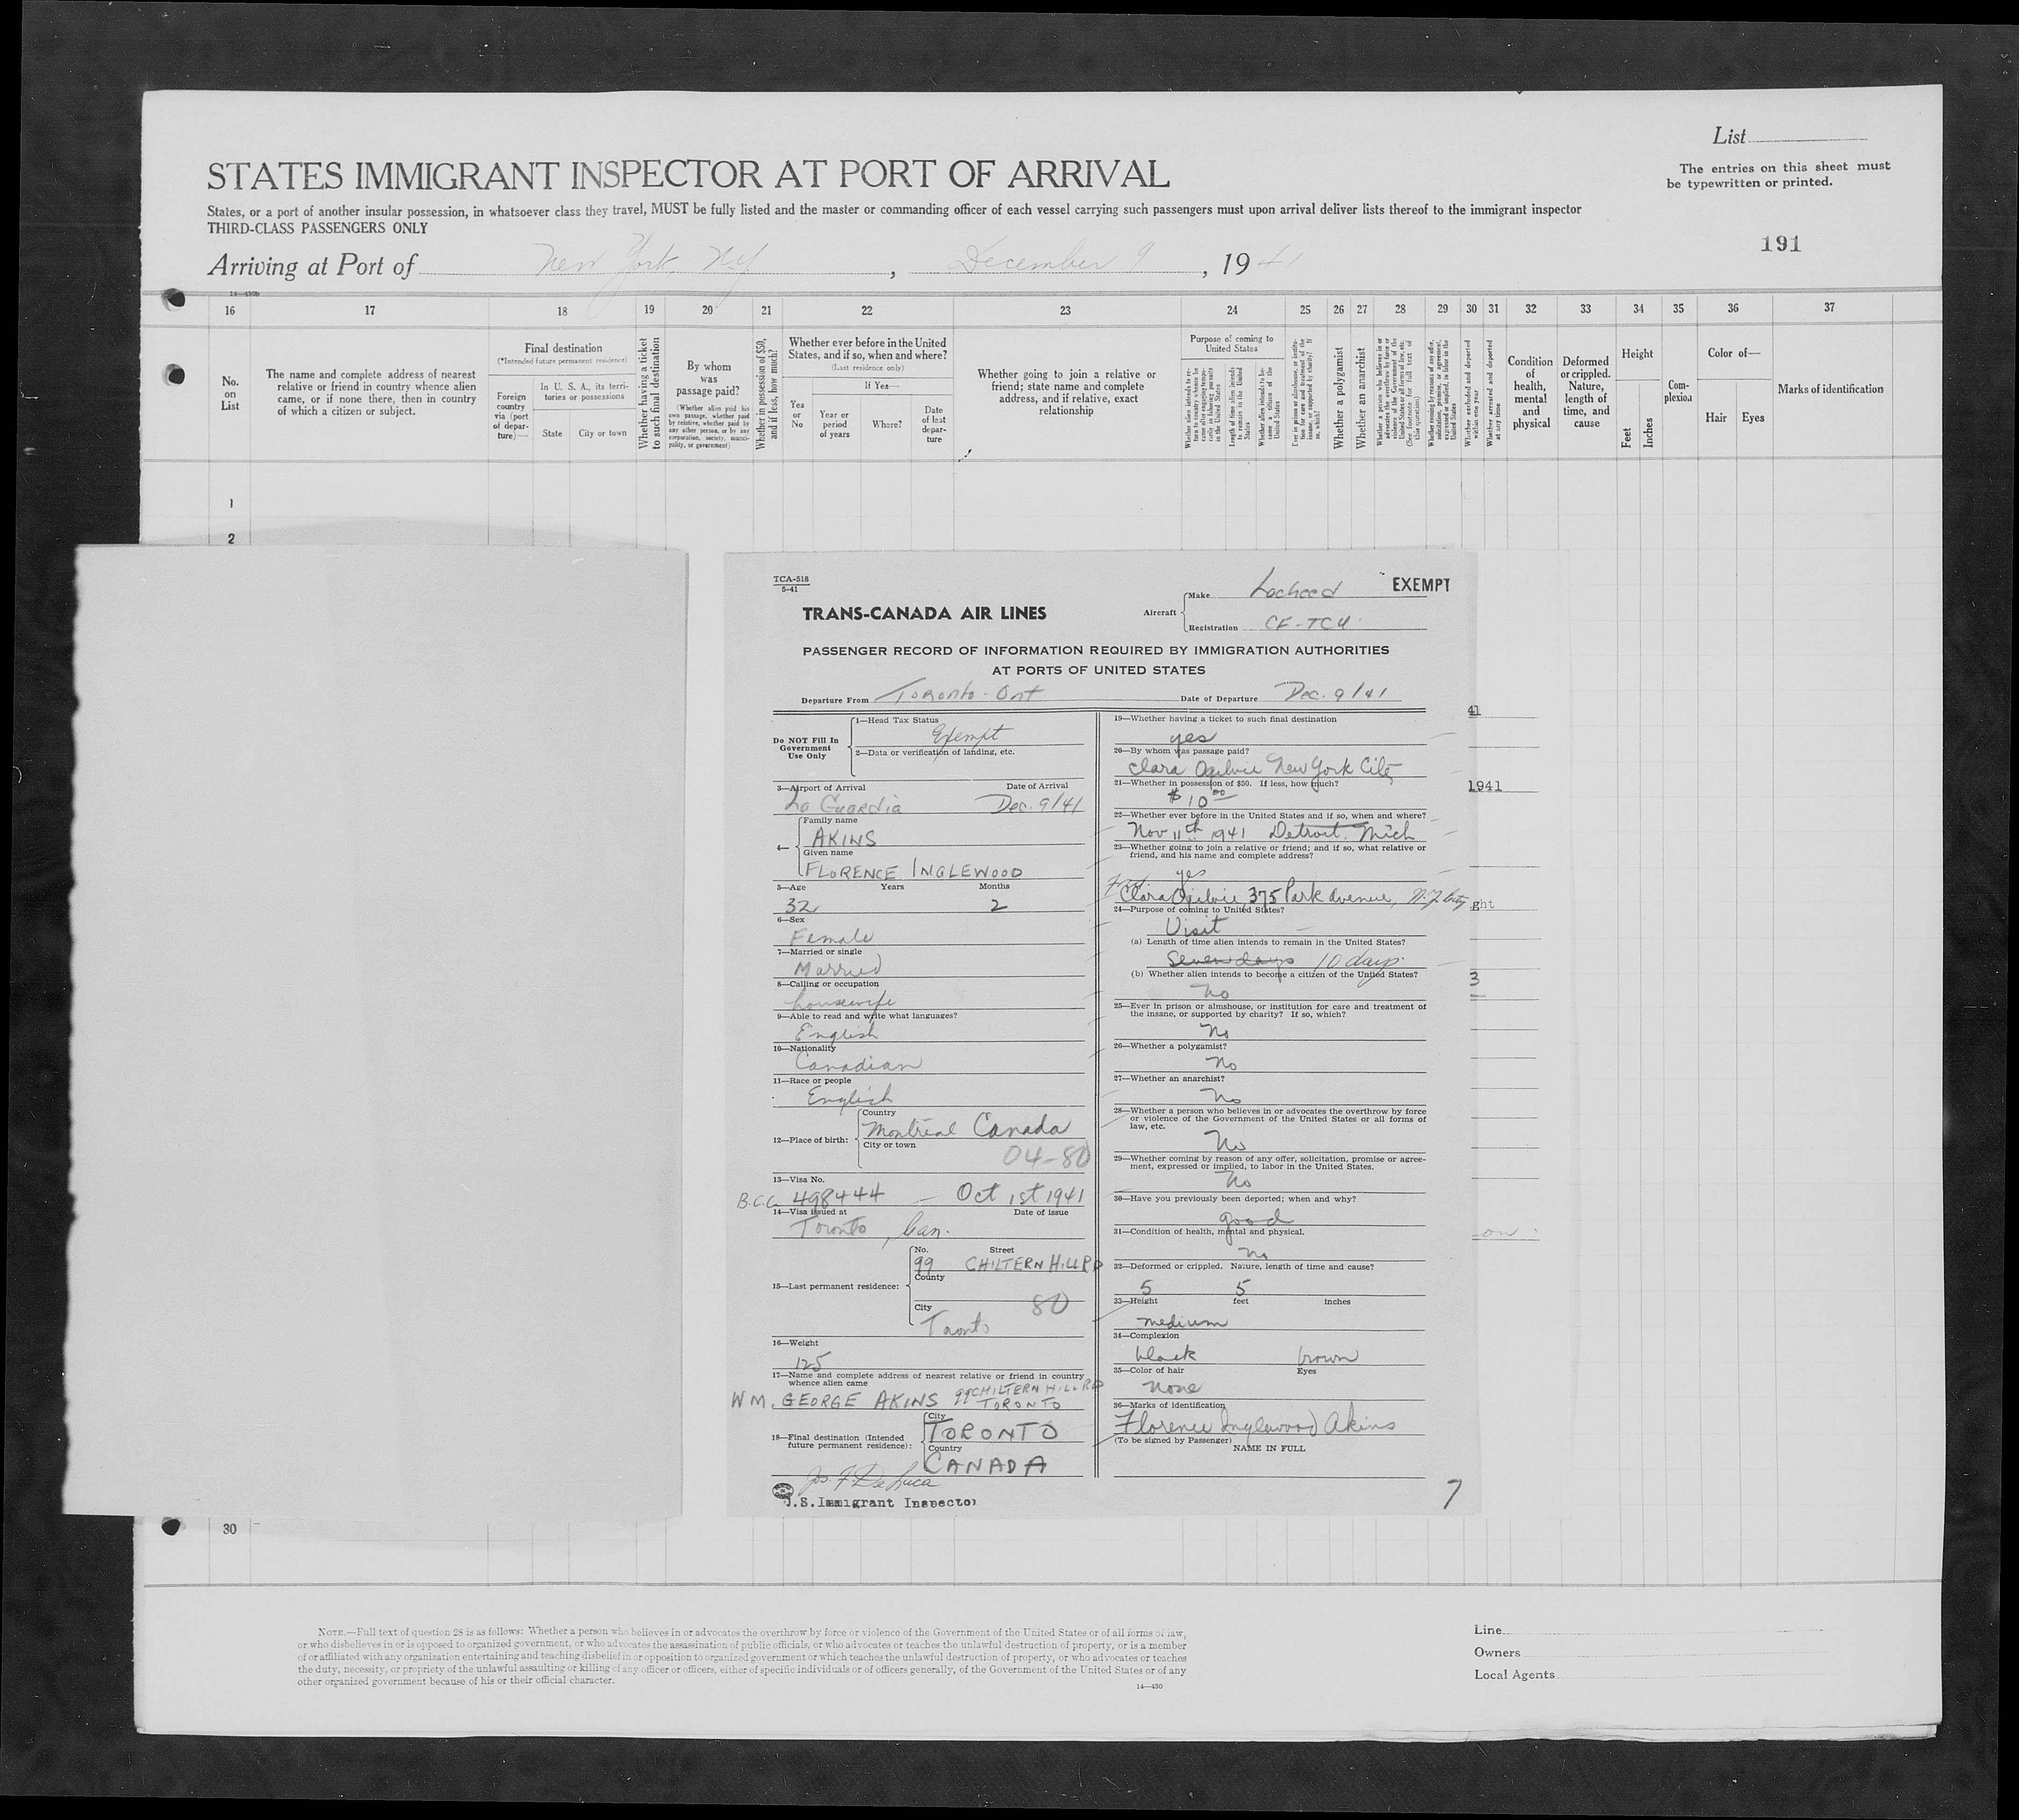 List
STATES IMMIGRANT INSPECTOR AT PORT OF ARRIVAL
The entries on this sheet must
be typewritten or printed.
States, or a port of another insular possession, in whatsoever class they travel, MUST be fully listed and the master or commanding officer of each vessel carrying such passengers must upon arrival deliver lists thereof to the immigrant inspector
THIRD-CLASS PASSENGERS ONLY
191
Arriving at Port of New York, NY, December 9, 1941
16 17 18 19 20 21 22 23 24 25 26 27 28 29 30 31 32 33 34 35 36 37
No.
on
List
The name and complete address of nearest
relative or friend in country whence alien
came, or if none there, then in country
of which a citizen or subject.
Final destination
(*Intended future permanent residence)
Foreign
country
via (port
of depar-
ture)—
In U. S. A., its terri-
tories or possessions
State City or town
Whether having a ticket
to such final destination
By whom
was
passage paid?
(Whether alien paid his
own passage, whether paid
by relative, whether paid by
any other person, or by any
corporation, society, munici-
pality, or government)
Whether in possession of $50,
and if less, how much?
Whether ever before in the United
States, and if so, when and where?
(Last residence only)
If Yes—
Yes
or
No
Year or
period
of years
Where?
Date
of last
depar-
ture
Whether going to join a relative or
friend; state name and complete
address, and if relative, exact
relationship
Purpose of coming to
United States
Length of time alien intends
to remain in the United
States
Whether alien intends to be-
come a citizen of the
United States
Whether a polygamist
Whether an anarchist
Whether excluded and deported
within one year
Whether arrested and deported
at any time
Condition
of
health,
mental
and
physical
Deformed
or crippled.
Nature,
length of
time, and
cause
Height
Feet
Inches
Com-
plexion
Color of—
Hair Eyes
Marks of identification
1
2
TCA-518
5-41
TRANS-CANADA AIR LINES
Aircraft
Make Locheed
Registration CF-TCU
EXEMPT
PASSENGER RECORD OF INFORMATION REQUIRED BY IMMIGRATION AUTHORITIES
AT PORTS OF UNITED STATES
Departure From Toronto-Ont Date of Departure Dec. 9/41
Do NOT Fill In
Government
Use Only
1—Head Tax Status
Exempt
2—Data or verification of landing, etc.
3—Airport of Arrival Date of Arrival
La Guardia Dec. 9/41
4— Family name
AKINS
Given name
FLORENCE INGLEWOOD
5—Age Years Months
32 2
6—Sex
Female
7—Married or single
Married
8—Calling or occupation
housewife
9—Able to read and write what languages?
English
10—Nationality
Canadian
11—Race or people
English
12—Place of birth:
Country
Montreal Canada
City or town
04-80
13—Visa No.
B.C.C. 498444 — Oct 1st 1941
14—Visa issued at Date of issue
Toronto, Can.
15—Last permanent residence:
No. Street
99 CHILTERN HILL RD
County
City
80
Toronto
16—Weight
125
17—Name and complete address of nearest relative or friend in country
whence alien came
WM. GEORGE AKINS 99 CHILTERN HILL RD
TORONTO
18—Final destination (Intended
future permanent residence):
City
TORONTO
Country
CANADA
Jos. F. DeLuca
U.S. Immigrant Inspector
19—Whether having a ticket to such final destination
yes
20—By whom was passage paid?
Clara Ogilvie New York City
21—Whether in possession of $50. If less, how much?
$10 00
22—Whether ever before in the United States and if so, when and where?
Nov 11th 1941 Detroit. Mich
23—Whether going to join a relative or friend; and if so, what relative or
friend, and his name and complete address?
yes
Clara Ogilvie 375 Park Avenue, N.Y. City
24—Purpose of coming to United States?
Visit
(a) Length of time alien intends to remain in the United States?
Seven days 10 days
(b) Whether alien intends to become a citizen of the United States?
no
25—Ever in prison or almshouse, or institution for care and treatment of
the insane, or supported by charity? If so, which?
No
26—Whether a polygamist?
No
27—Whether an anarchist?
No
28—Whether a person who believes in or advocates the overthrow by force
or violence of the Government of the United States or all forms of
law, etc.
No
29—Whether coming by reason of any offer, solicitation, promise or agree-
ment, expressed or implied, to labor in the United States.
No
30—Have you previously been deported; when and why?
good
31—Condition of health, mental and physical.
no
32—Deformed or crippled. Nature, length of time and cause?
5 5
33—Height feet inches
medium
34—Complexion
black brown
35—Color of hair Eyes
none
36—Marks of identification
Florence Inglewood Akins
(To be signed by Passenger)
NAME IN FULL
7
41
1941
ght
3
on
30
NOTE.—Full text of question 28 is as follows: Whether a person who believes in or advocates the overthrow by force or violence of the Government of the United States or of all forms of law,
or who disbelieves in or is opposed to organized government, or who advocates the assassination of public officials, or who advocates or teaches the unlawful destruction of property, or is a member
of or affiliated with any organization entertaining and teaching disbelief in or opposition to organized government or which teaches the unlawful destruction of property, or who advocates or teaches
the duty, necessity, or propriety of the unlawful assaulting or killing of any officer or officers, either of specific individuals or of officers generally, of the Government of the United States or of any
other organized government because of his or their official character.
14—430
Line
Owners
Local Agents